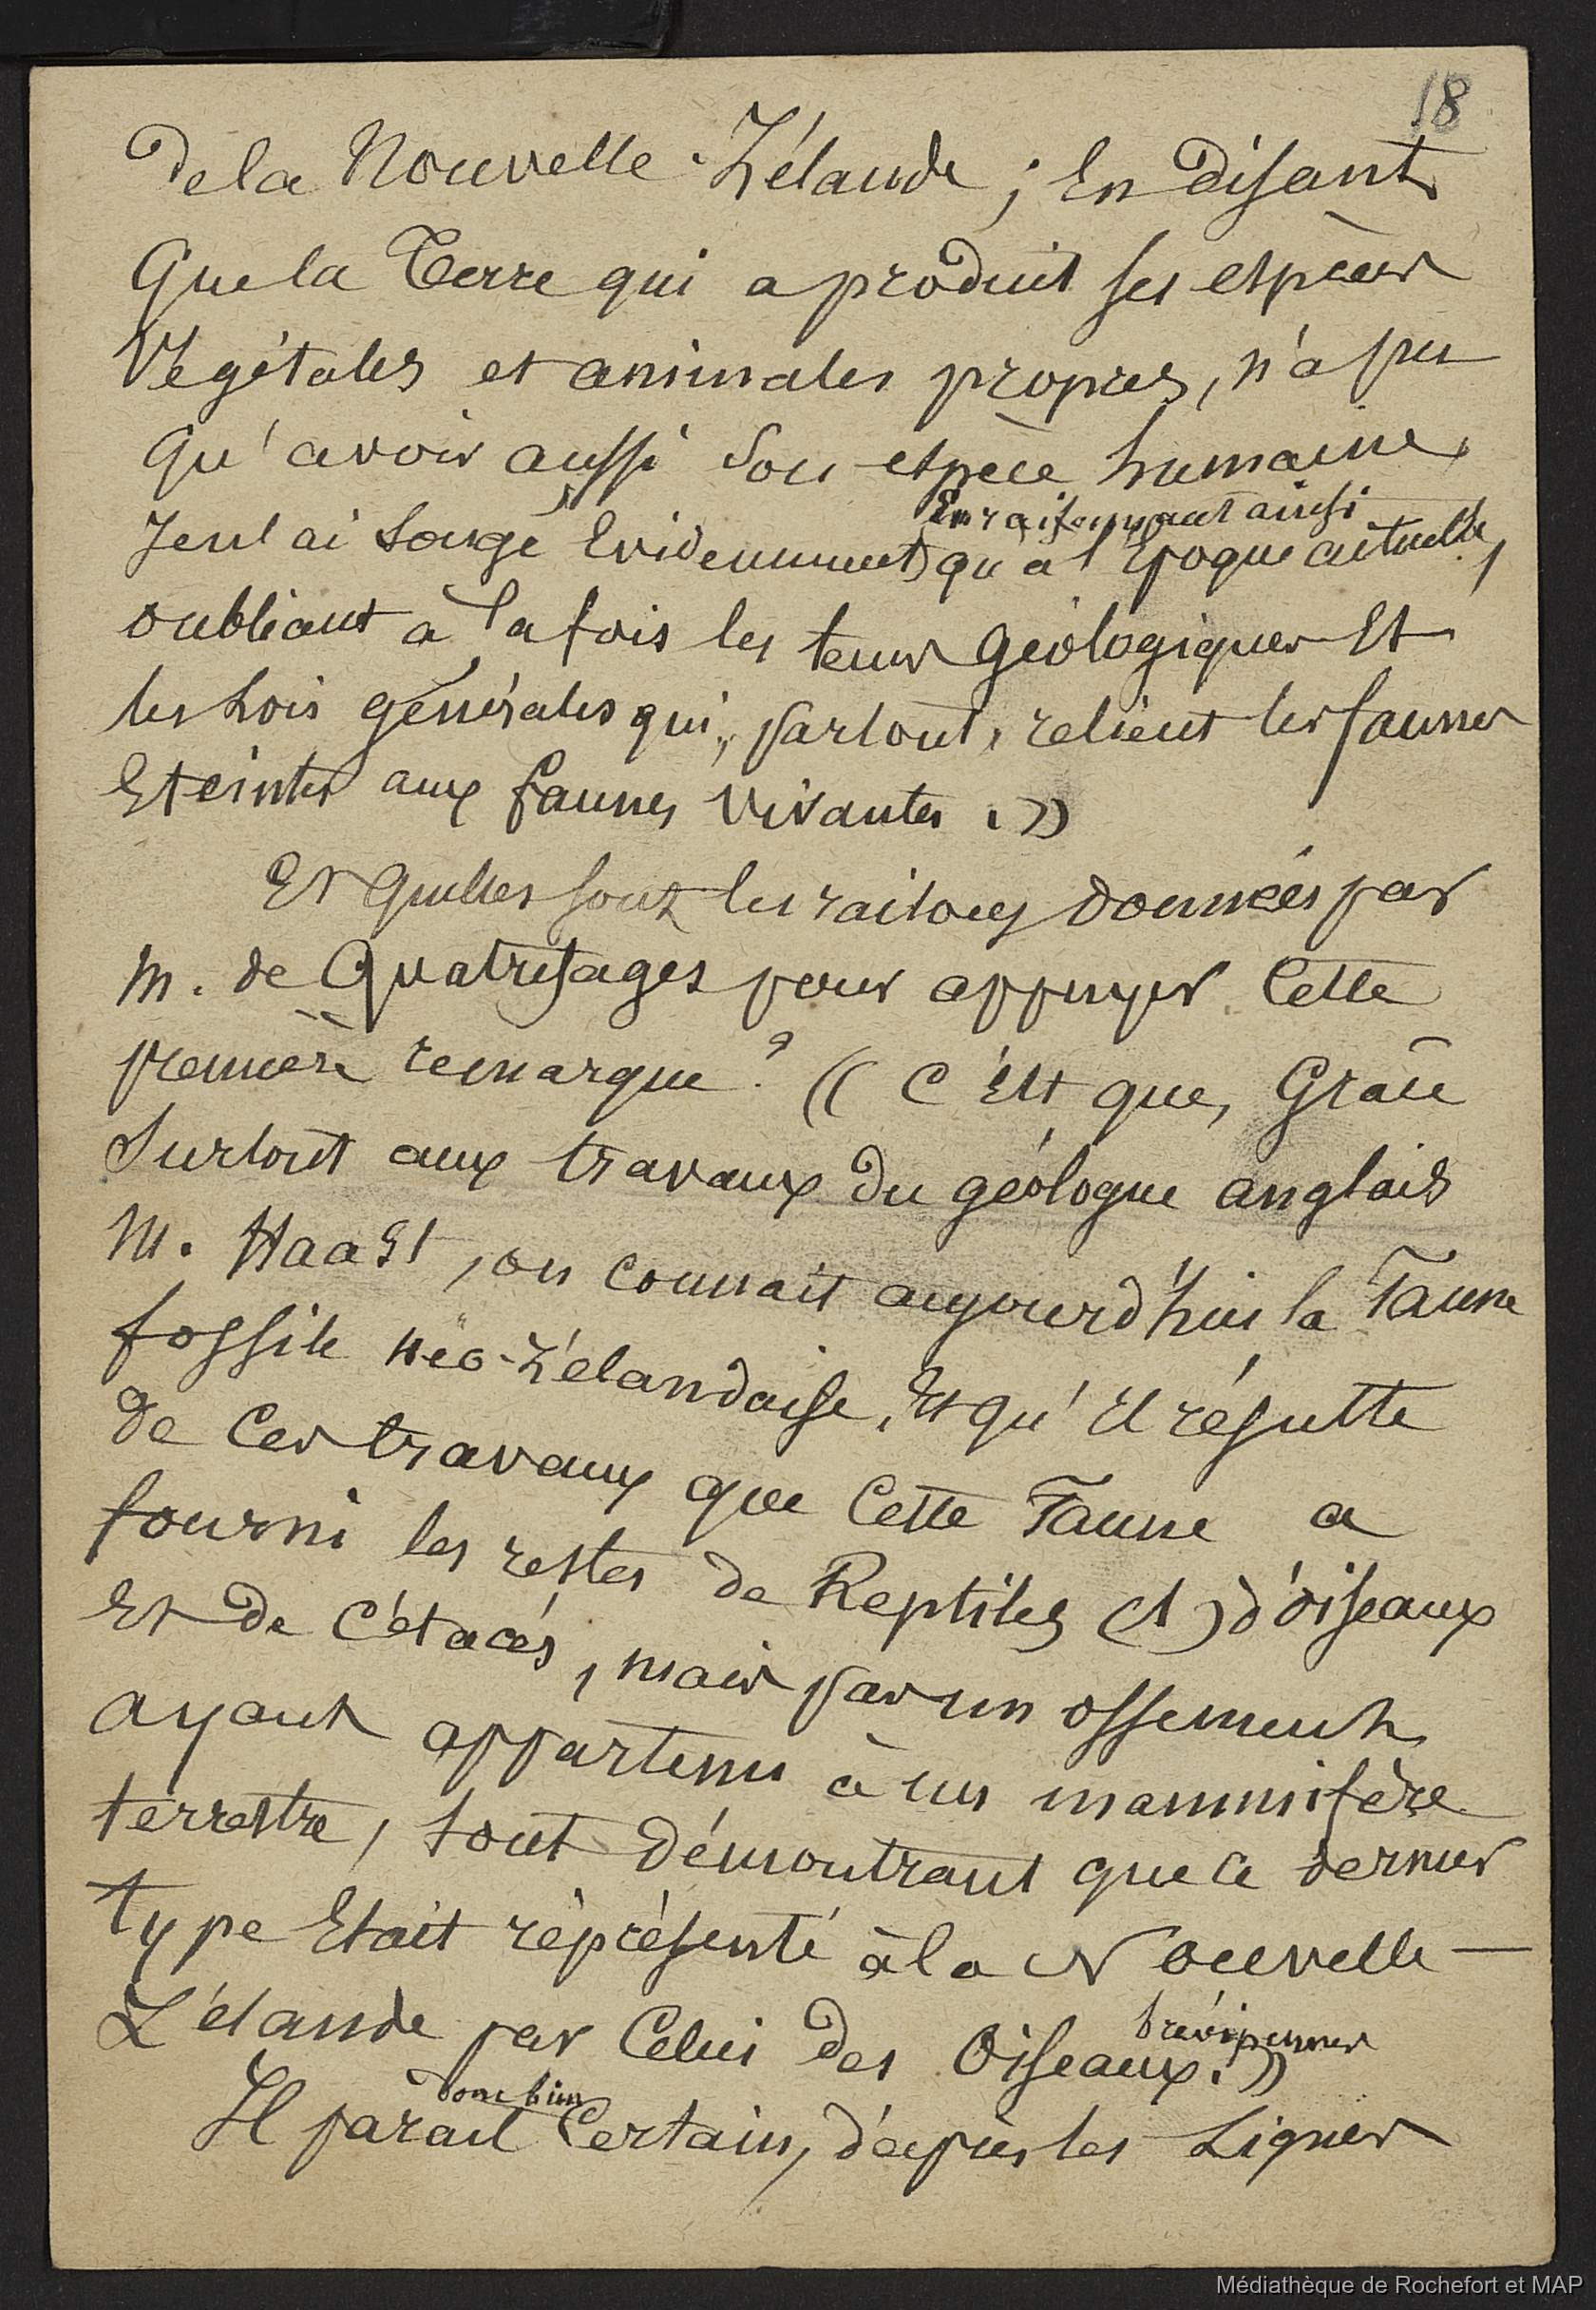 18
de la Nouvelle-Zélande ; En disant
Que la Terre qui a produit ses espèces
Végétales et animales propres, n'a pu
Qu'avoir aussi son espèce humaine,
En raisonnant ainsi
songé Evidemment qu'à l'Epoque actuelle,
oubliant à la fois les tems géologiques Et
les Lois générales qui, partout, relient les faunes
Eteintes aux faunes vivantes. »
Et Quelles sont les raisons données par
M. de Quatrefages pour appuyer Cette
première remarque ? « C'Est que, Grâce
Surtout aux travaux du géologue anglais
M. Haast, on connait aujourd'hui la Faune
fossile néo-Zélandaise, Et qu'il résulte
de Ces travaux que Cette Faune a
fourni les restes de Reptiles (1) d'oiseaux
Et de Cétacés, mais pas un ossement
ayant appartenu à un mammifère
terrestre, tout démontrant que ce dernier
type Etait représenté à la Nouvelle-
Zélande par Celui des Oiseaux brévipennes. »
Il parait donc bien Certain, d'après les Lignes
Médiathèque de Rochefort et MAP